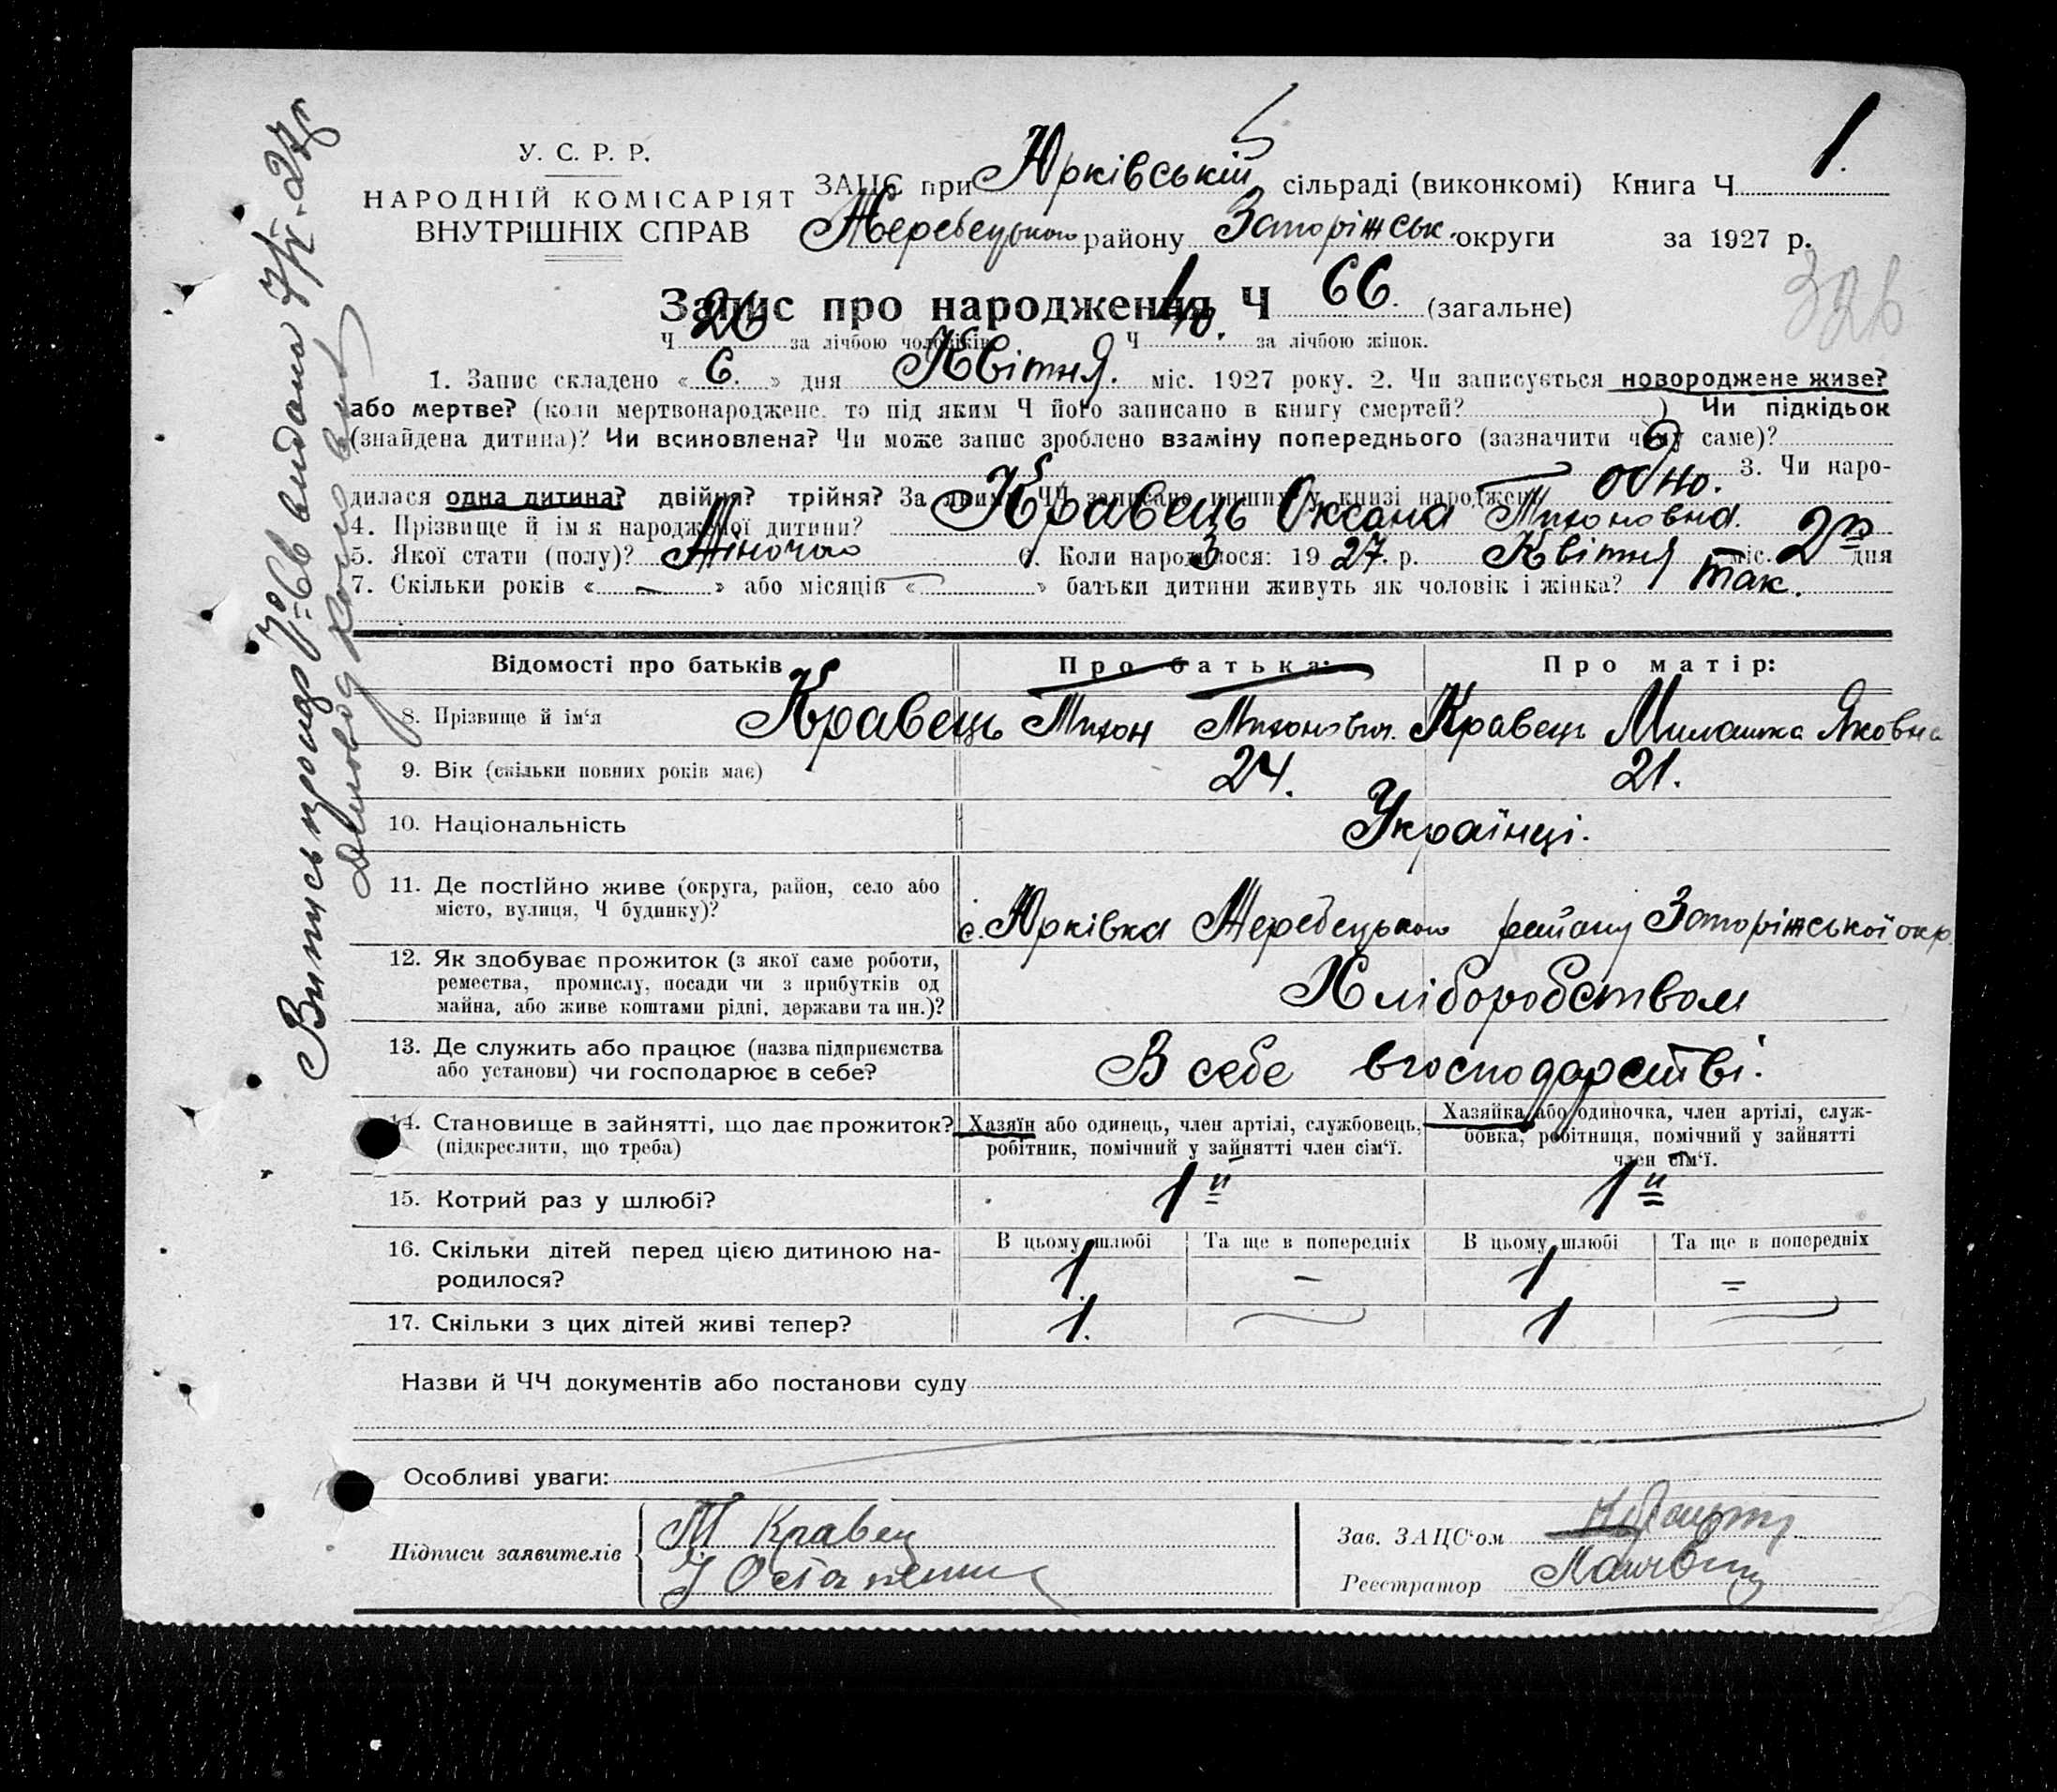 У. С. Р. Р.
НАРОДНІЙ КОМІСАРІЯТ
ВНУТРІШНІХ СПРАВ
ЗАЦС при Юрківській сільраді (виконкомі) Книга Ч 1.
Жеребецького району Запоріжськ. округи за 1927 р.
326
Запис про народження Ч 66. (загальне)
Ч 26 за лічбою чоловіків Ч 40. за лічбою жінок.
1. Запис складено « 6. » дня Квітня. міс. 1927 року. 2. Чи записується новороджене живе?
або мертве? (коли мертвонароджене, то під яким Ч його записано в книгу смертей? ) Чи підкідьок
(знайдена дитина)? Чи всиновлена? Чи може запис зроблено взаміну попереднього (зазначити чому саме)?
3. Чи наро-
дилася одна дитина? двійня? трійня? За якими ЧЧ записано инших у книзі народжень одно.
4. Прізвище й ім'я народженої дитини? Кравець Оксана Тихоновна.
5. Якої стати (полу)? Жіночао 6. Коли народилося: 1927. р. Квітня міс. 2го дня
7. Скільки років « — » або місяців « » батьки дитини живуть як чоловік і жінка? так.
Відомості про батьків Про батька: Про матір:
8. Прізвище й ім'я Кравець Тихон Тихонович. Кравець Милашка Яковна
9. Вік (скільки повних років має) 24. 21.
10. Національність Українці.
11. Де постІйно живе (округа, район, село або
місто, вулиця, Ч будинку)? с. Юрківка Жеребецького району Запоріжської окр.
12. Як здобуває прожиток (з якої саме роботи,
ремества, промислу, посади чи з прибутків од
майна, або живе коштами рідні, держави та ин.)? Хліборобством
13. Де служить або працює (назва підприємства
або установи) чи господарює в себе? В себе вгосподарстві.
14. Становище в зайнятті, що дає прожиток?
(підкреслити, що треба)
Хазяїн або одинець, член артілі, службовець,
робітник, помічний у зайнятті член сім'ї.
Хазяйка або одиночка, член артілі, служ-
бовка, робітниця, помічний у зайнятті
член сім'ї.
15. Котрий раз у шлюбі? 1й 1й
16. Скільки дітей перед цією дитиною на-
родилося?
В цьому шлюбі Та ще в попередніх В цьому шлюбі Та ще в попередніх
1 – 1 =
17. Скільки з цих дітей живі тепер? 1. 1
Назви й ЧЧ документів або постанови суду
Особливі уваги:
Підписи заявителів
Т Кравец
Зав. ЗАЦС'ом
Реєстратор
Випись
видана